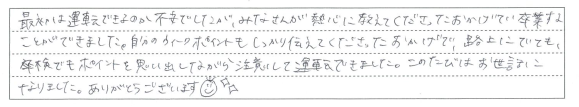 最初は運転できるのか不安でしたが、みなさんが熱心に教えてくださったおかげで卒業する
ことができました。自分のウィークポイントもしっかり伝えてくださったおかげで、路上にでても、
卒検でもポイントを思い出しながら注意して運転できました。このたびはお世話に
なりました。ありがとうございます